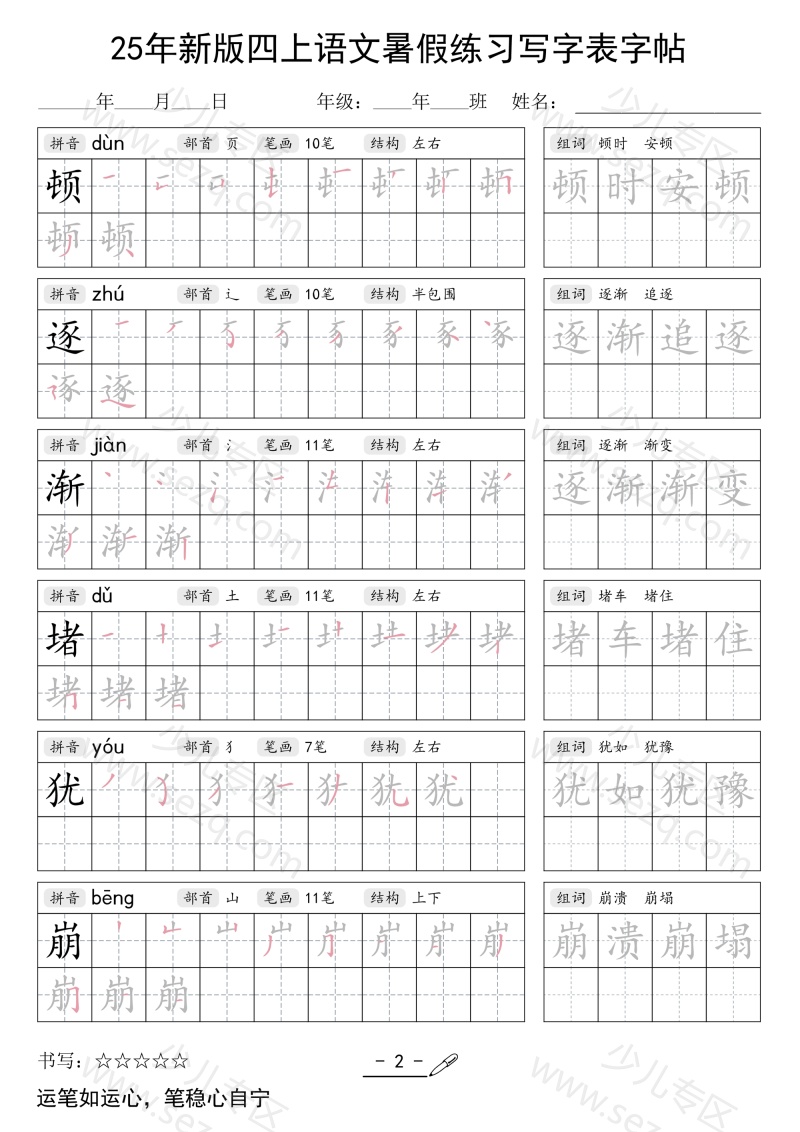 25年新版四上语文暑假练习写字表字帖
年 月 日 年级： 年 班 姓名：
拼音 dùn 部首 页 笔画 10笔 结构 左右 组词 顿时 安顿
顿 顿时安顿
拼音 zhú 部首 辶 笔画 10笔 结构 半包围 组词 逐渐 追逐
逐 逐渐追逐
拼音 jiàn 部首 氵 笔画 11笔 结构 左右 组词 逐渐 渐变
渐 逐渐渐变
拼音 dǔ 部首 土 笔画 11笔 结构 左右 组词 堵车 堵住
堵 堵车堵住
拼音 yóu 部首 犭 笔画 7笔 结构 左右 组词 犹如 犹豫
犹 犹如犹豫
拼音 bēng 部首 山 笔画 11笔 结构 上下 组词 崩溃 崩塌
崩 崩溃崩塌
书写：☆☆☆☆☆ - 2 -
运笔如运心，笔稳心自宁
少儿专区
www.sezq.com